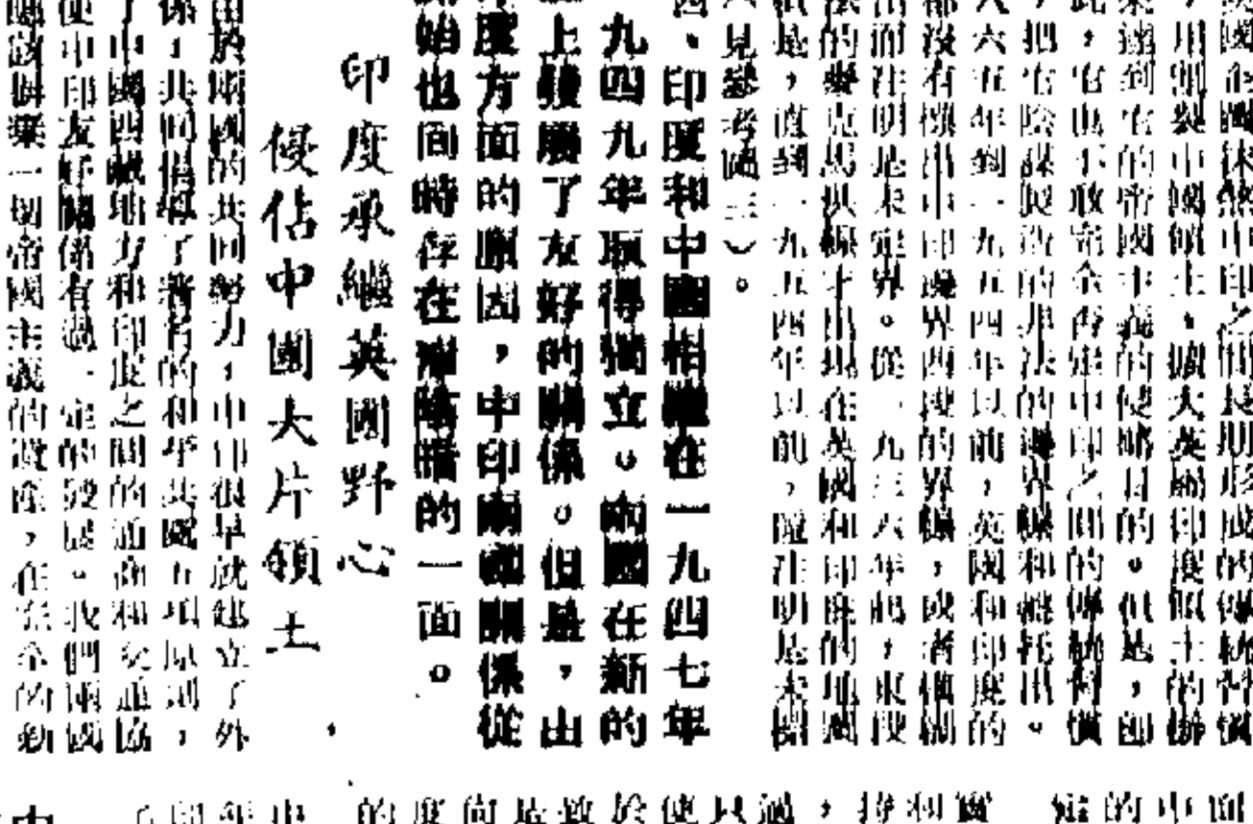 國企圖抹煞中印之間長期形成的傳統習慣
，用割裂中國領土，擴大英屬印度領土的辦
來達到它的帝國主義的侵略目的。但是，卽
此，它也不敢完全否定中印之間的傳統習慣
，把它陰謀侵佔的非法的邊界線和盤托出。
八六五年到一九五四年以前，英國和印度的
都沒有標出中印邊界西段的界線，或者模糊
出而注明是未定界。從一九三六年起，東段
法的麥克馬洪線才出現在英國和印度的地圖
是，直到一九五四年以前，還注明是未標
見參考圖三）。
四、印度和中國相繼在一九四七年
九四九年取得獨立。兩國在新的
上發展了友好的關係。但是，由
度方面的原因，中印兩國關係從
始也同時存在着陰暗的一面。
印度承繼英國野心
侵佔中國大片領土
由於兩國的共同努力，中印很早就建立了外
係，共同倡導了著名的和平共處五項原則，
了中國西藏地方和印度之間的通商和交通協
使中印友好關係有過一定的發展。我們兩國
應該摒棄一切帝國主義的遺產，在完全的新